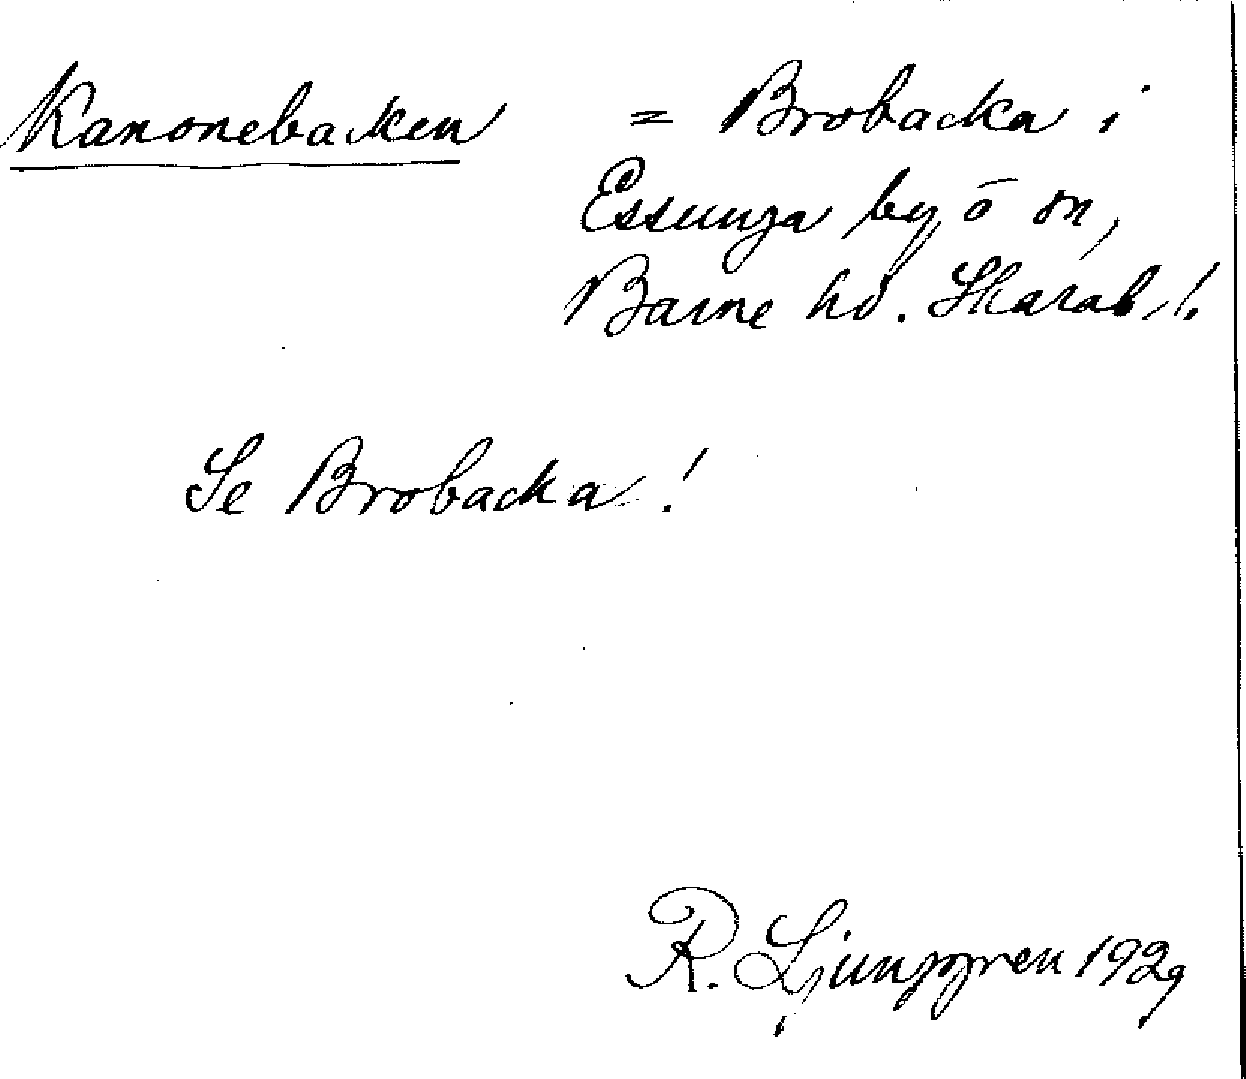 Kanonebacken = Brobacka i
Essunga by o sn,
Barne hd. Skarab. l.
Se Brobacka!
R. Ljunggren 1929